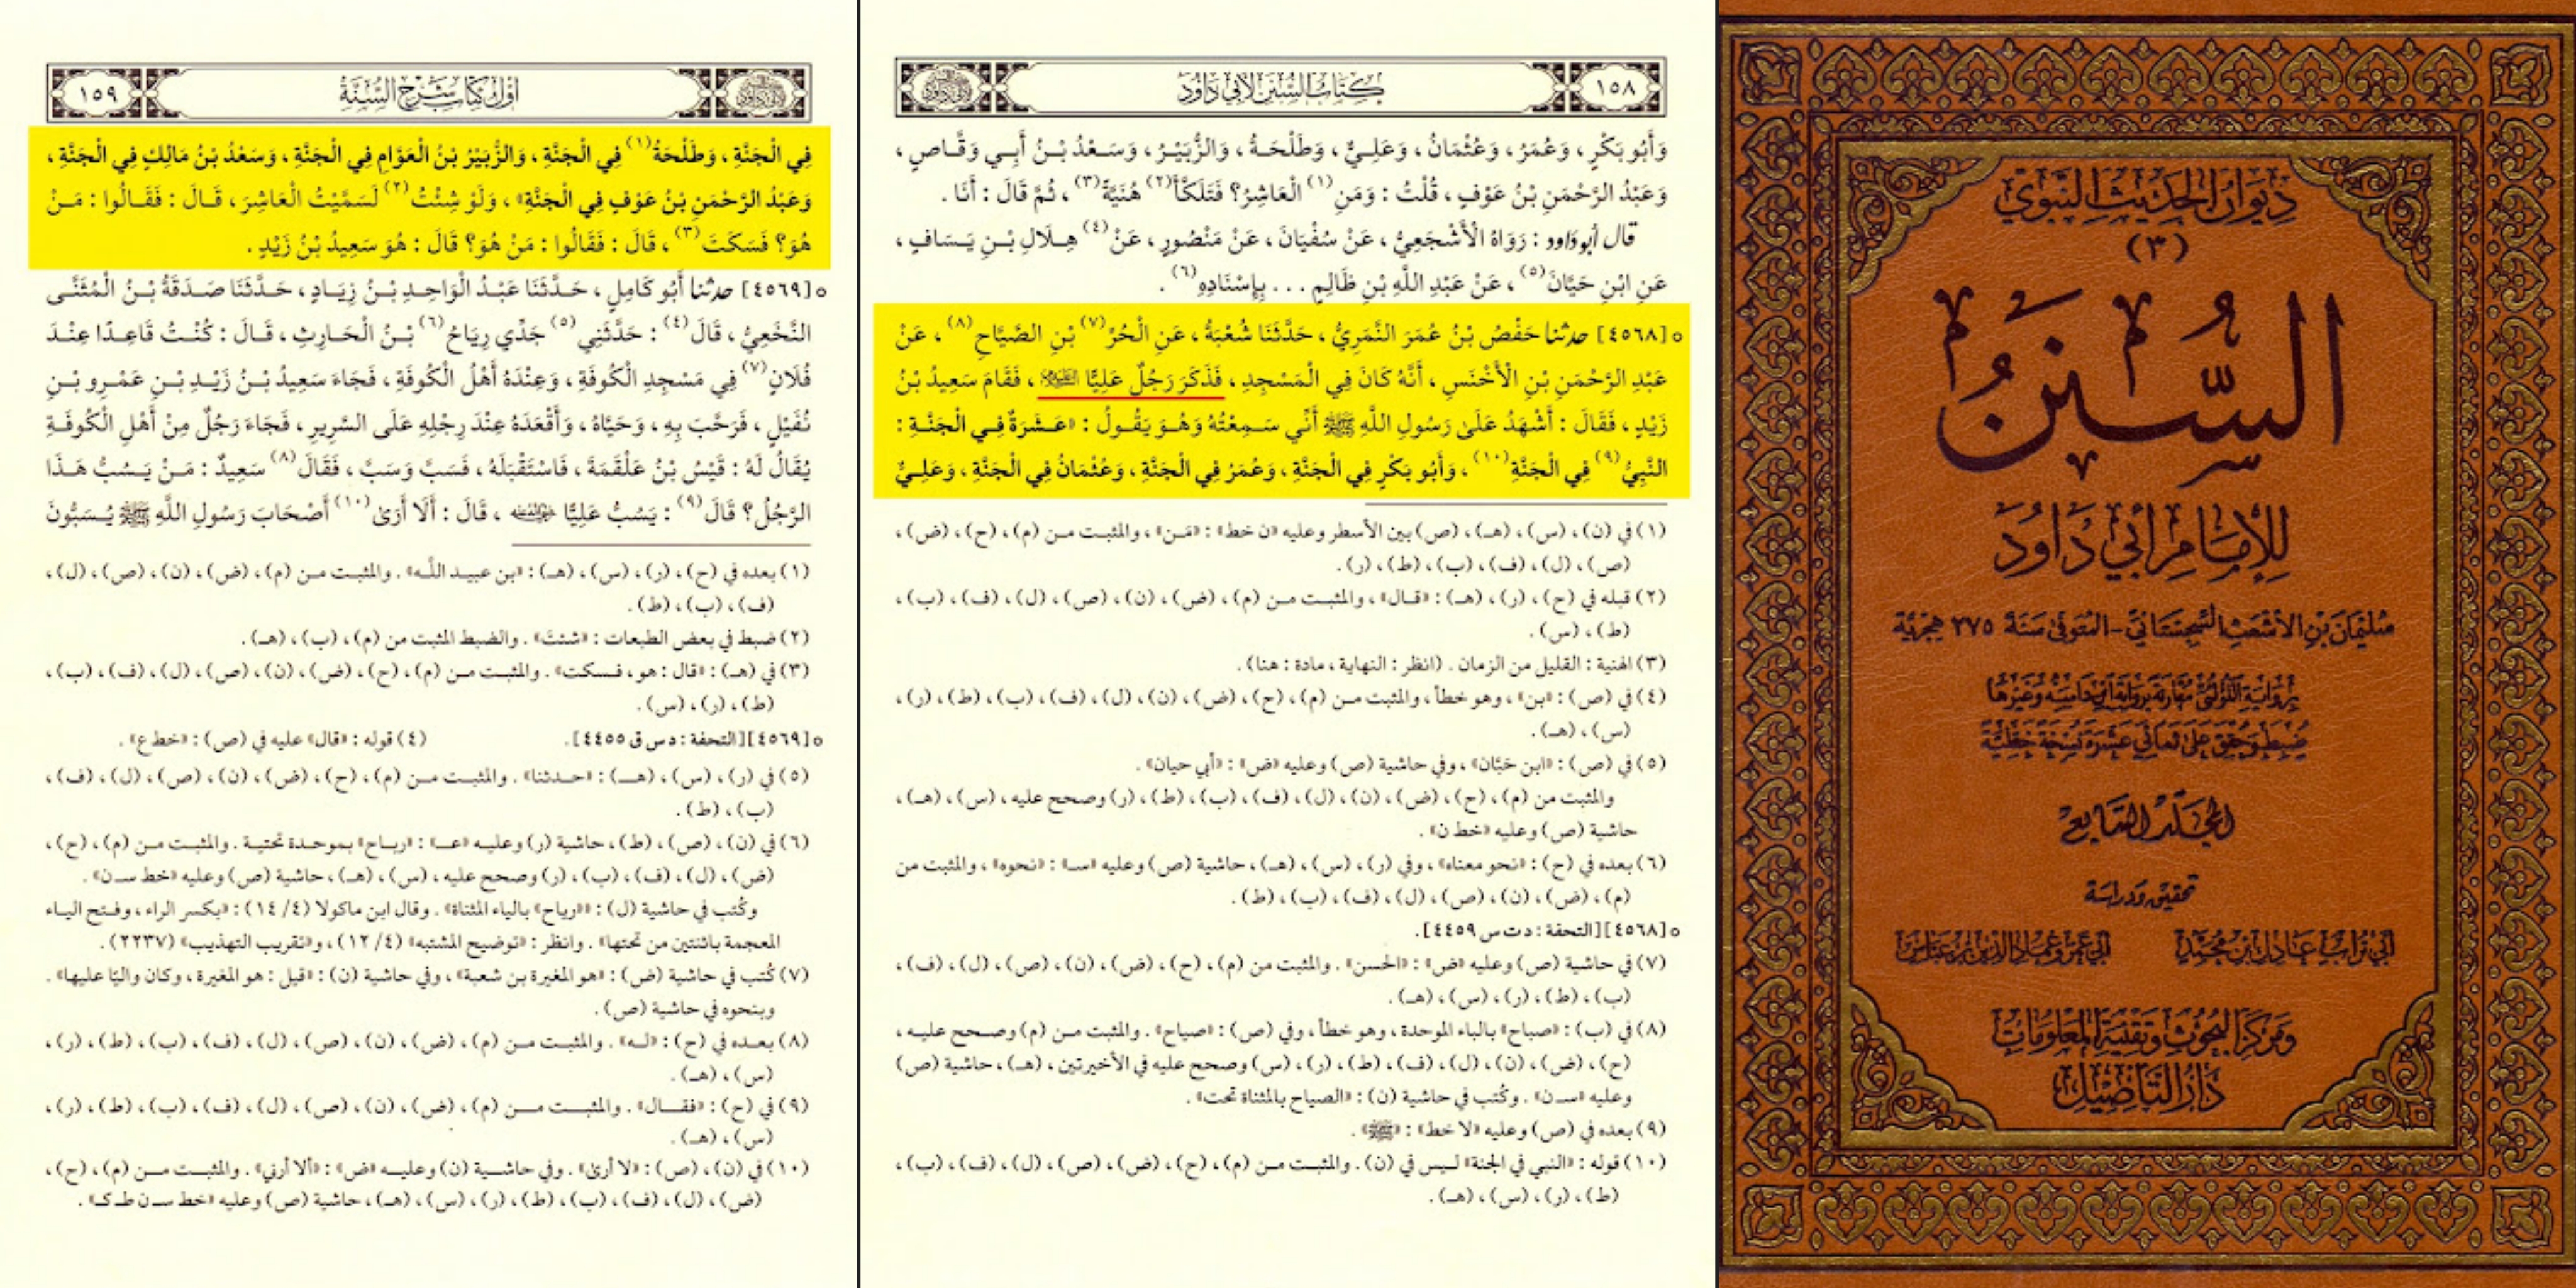 ديوان الحديث النبوي
(٣)
السُّنَنُ
للإمام أبي داود
سليمان بن الأشعث السجستاني - المتوفى سنة ٢٧٥ هجرية
برواية اللؤلئي مقارنة برواية ابن داسه وغيرها
ضبط وحقق على ثماني عشرة نسخة خطية
المجلد السابع
تحقيق ودراسة
أبي تراب عادل بن محمد أبي عمرو عماد الدين بن عباس
ومركز البحوث وتقنية المعلومات
دار التأصيل
١٥٨ كتاب السنن لأبي داود
وَأَبُو بَكْرٍ، وَعُمَرُ، وَعُثْمَانُ، وَعَلِيٌّ، وَطَلْحَةُ، وَالزُّبَيْرُ، وَسَعْدُ بْنُ أَبِي وَقَّاصٍ،
وَعَبْدُ الرَّحْمَنِ بْنُ عَوْفٍ، قُلْتُ: وَمَنِ(١) الْعَاشِرُ؟ فَتَلَكَّأَ(٢) هُنَيَّةً(٣)، ثُمَّ قَالَ: أَنَا.
قال أبو داود: رَوَاهُ الْأَشْجَعِيُّ، عَنْ سُفْيَانَ، عَنْ مَنْصُورٍ، عَنْ(٤) هِلَالِ بْنِ يَسَافٍ،
عَنِ ابْنِ حَيَّانَ(٥)، عَنْ عَبْدِ اللَّهِ بْنِ ظَالِمٍ ... بِإِسْنَادِهِ(٦).
٥[٤٥٦٨] حدثنا حَفْصُ بْنُ عُمَرَ النَّمَرِيُّ، حَدَّثَنَا شُعْبَةُ، عَنِ الْحُرِّ(٧) بْنِ الصَّيَّاحِ(٨)، عَنْ
عَبْدِ الرَّحْمَنِ بْنِ الْأَخْنَسِ، أَنَّهُ كَانَ فِي الْمَسْجِدِ، فَذَكَرَ رَجُلٌ عَلِيًّا، فَقَامَ سَعِيدُ بْنُ
زَيْدٍ، فَقَالَ: أَشْهَدُ عَلَى رَسُولِ اللَّهِ ﷺ أَنِّي سَمِعْتُهُ وَهُوَ يَقُولُ: «عَشَرَةٌ فِي الْجَنَّةِ:
النَّبِيُّ(٩) فِي الْجَنَّةِ(١٠)، وَأَبُو بَكْرٍ فِي الْجَنَّةِ، وَعُمَرُ فِي الْجَنَّةِ، وَعُثْمَانُ فِي الْجَنَّةِ، وَعَلِيٌّ
(١) في (ن)، (س)، (هـ)، (ص) بين الأسطر وعليه «ن خط»: «مَن»، والمثبت من (م)، (ح)، (ض)،
(ص)، (ل)، (ف)، (ب)، (ط)، (ر).
(٢) قبله في (ح)، (ر)، (هـ): «قال»، والمثبت من (م)، (ض)، (ن)، (ص)، (ل)، (ف)، (ب)،
(ط)، (س).
(٣) الهنية: القليل من الزمان. (انظر: النهاية، مادة: هنا).
(٤) في (ص): «بن»، وهو خطأ، والمثبت من (م)، (ح)، (ض)، (ن)، (ل)، (ف)، (ب)، (ط)، (ر)،
(س)، (هـ).
(٥) في (ص): «ابن حَبَّان»، وفي حاشية (ص) وعليه «ض»: «أبي حيان».
والمثبت من (م)، (ح)، (ض)، (ن)، (ل)، (ف)، (ب)، (ط)، (ر) وصحح عليه، (س)، (هـ)،
حاشية (ص) وعليه «خط ن».
(٦) بعده في (ح): «نحو معناه»، وفي (ر)، (س)، (هـ)، حاشية (ص) وعليه «سـ»: «نحوه»، والمثبت من
(م)، (ض)، (ن)، (ص)، (ل)، (ف)، (ب)، (ط).
٥[٤٥٦٨][التحفة: د ت س ٤٤٥٩].
(٧) في حاشية (ص) وعليه «ض»: «الحسن». والمثبت من (م)، (ح)، (ض)، (ن)، (ص)، (ل)، (ف)،
(ب)، (ط)، (ر)، (س)، (هـ).
(٨) في (ب): «صباح» بالباء الموحدة، وهو خطأ، وفي (ص): «صياح». والمثبت من (م) وصحح عليه،
(ح)، (ض)، (ن)، (ل)، (ف)، (ط)، (ر)، (س) وصحح عليه في الأخيرتين، (هـ)، حاشية (ص)
وعليه «سـ ن». وكُتب في حاشية (ن): «الصياح بالمثناة تحت».
(٩) بعده في (ص) وعليه «لا خط»: «ﷺ».
(١٠) قوله: «النبي في الجنة» ليس في (ن). والمثبت من (م)، (ح)، (ض)، (ص)، (ل)، (ف)، (ب)،
(ط)، (ر)، (س)، (هـ).
أول كتاب شرح السنة ١٥٩
فِي الْجَنَّةِ، وَطَلْحَةُ(١) فِي الْجَنَّةِ، وَالزُّبَيْرُ بْنُ الْعَوَّامِ فِي الْجَنَّةِ، وَسَعْدُ بْنُ مَالِكٍ فِي الْجَنَّةِ،
وَعَبْدُ الرَّحْمَنِ بْنُ عَوْفٍ فِي الْجَنَّةِ»، وَلَوْ شِئْتُ(٢) لَسَمَّيْتُ الْعَاشِرَ، قَالَ: فَقَالُوا: مَنْ
هُوَ؟ فَسَكَتَ(٣)، قَالَ: فَقَالُوا: مَنْ هُوَ؟ قَالَ: هُوَ سَعِيدُ بْنُ زَيْدٍ.
٥[٤٥٦٩] حدثنا أَبُو كَامِلٍ، حَدَّثَنَا عَبْدُ الْوَاحِدِ بْنُ زِيَادٍ، حَدَّثَنَا صَدَقَةُ بْنُ الْمُثَنَّى
النَّخَعِيُّ، قَالَ(٤): حَدَّثَنِي(٥) جَدِّي رِيَاحُ(٦) بْنُ الْحَارِثِ، قَالَ: كُنْتُ قَاعِدًا عِنْدَ
فُلَانٍ(٧) فِي مَسْجِدِ الْكُوفَةِ، وَعِنْدَهُ أَهْلُ الْكُوفَةِ، فَجَاءَ سَعِيدُ بْنُ زَيْدِ بْنِ عَمْرِو بْنِ
نُفَيْلٍ، فَرَحَّبَ بِهِ، وَحَيَّاهُ، وَأَقْعَدَهُ عِنْدَ رِجْلِهِ عَلَى السَّرِيرِ، فَجَاءَ رَجُلٌ مِنْ أَهْلِ الْكُوفَةِ
يُقَالُ لَهُ: قَيْسُ بْنُ عَلْقَمَةَ، فَاسْتَقْبَلَهُ، فَسَبَّ وَسَبَّ، فَقَالَ(٨) سَعِيدٌ: مَنْ يَسُبُّ هَذَا
الرَّجُلُ؟ قَالَ(٩): يَسُبُّ عَلِيًّا، قَالَ: أَلَا أَرَى(١٠) أَصْحَابَ رَسُولِ اللَّهِ ﷺ يُسَبُّونَ
(١) بعده في (ح)، (ر)، (س)، (هـ): «بن عبيد اللَّه». والمثبت من (م)، (ض)، (ن)، (ص)، (ل)،
(ف)، (ب)، (ط).
(٢) ضبط في بعض الطبعات: «شئتَ». والضبط المثبت من (م)، (ب)، (هـ).
(٣) في (هـ): «قال: هو، فسكت». والمثبت من (م)، (ح)، (ض)، (ن)، (ص)، (ل)، (ف)، (ب)،
(ط)، (ر)، (س).
٥[٤٥٦٩][التحفة: د س ق ٤٤٥٥]. (٤) قوله: «قال» عليه في (ص): «خط ع».
(٥) في (ر)، (س)، (هـ): «حدثنا». والمثبت من (م)، (ح)، (ض)، (ن)، (ص)، (ل)، (ف)،
(ب)، (ط).
(٦) في (ن)، (ص)، (ط)، حاشية (ر) وعليه «عـ»: «رباح» بموحدة تحتية. والمثبت من (م)، (ح)،
(ض)، (ل)، (ف)، (ب)، (ر) وصحح عليه، (س)، (هـ)، حاشية (ص) وعليه «خط سـ ن».
وكُتب في حاشية (ل): «رياح» بالياء المثناة». وقال ابن ماكولا (٤/ ١٤): «بكسر الراء، وفتح الياء
المعجمة باثنتين من تحتها». وانظر: «توضيح المشتبه» (٤/ ١٢)، و«تقريب التهذيب» (٢٢٣٧).
(٧) كُتب في حاشية (ض): «هو المغيرة بن شعبة»، وفي حاشية (ن): «قيل: هو المغيرة، وكان واليًا عليها».
وبنحوه في حاشية (ص).
(٨) بعده في (ح): «له». والمثبت من (م)، (ض)، (ن)، (ص)، (ل)، (ف)، (ب)، (ط)، (ر)،
(س)، (هـ).
(٩) في (ح): «فقال». والمثبت من (م)، (ض)، (ن)، (ص)، (ل)، (ف)، (ب)، (ط)، (ر)،
(س)، (هـ).
(١٠) في (ن)، (ص): «لا أرى». وفي حاشية (ن) وعليه «ض»: «ألا أرني». والمثبت من (م)، (ح)،
(ض)، (ل)، (ف)، (ب)، (ط)، (ر)، (س)، (هـ)، حاشية (ص) وعليه «خط سـ ن ط ك».